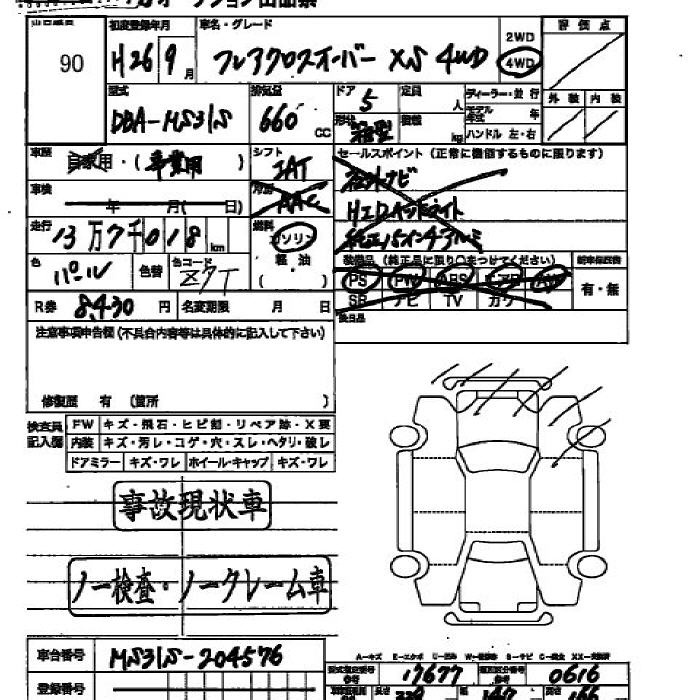 出品票
90
初度登録年月
H26 9月
車名・グレード
フレアクロスオーバー XS 4WD
2WD
4WD
評価点
外装 内装
型式
DBA-MS31S
排気量
660 cc
ドア
5
形状
箱型
定員
人
積載
kg
ディーラー・並行
モデル年式 年
ハンドル 左・右
車歴
自家用・(事業用)
シフト
IAT
セールスポイント (正常に機能するものに限ります)
HIDヘッドライト
車検
年 月( 日)
AAC
走行
13万7千018km
燃料
ガソリン
軽油
( )
色
パール
色替
色コード
Z7T
装備品 (純正品に限り○をつけてください)
PS PW ABS
SR ナビ TV カワ
有・無
後日品
R券 8,430円
名変期限 月 日
注意事項申告欄 (不具合内容等は具体的に記入して下さい)
修復歴 有 (箇所 )
検査員記入欄
FW キズ・飛石・ヒビ割・リペア跡・X要
内装 キズ・汚レ・コゲ・穴・スレ・ヘタリ・破レ
ドアミラー キズ・ワレ ホイール・キャップ キズ・ワレ
事故現状車
ノー検査・ノークレーム車
車台番号
MS31S-204576
登録番号
17677
0616